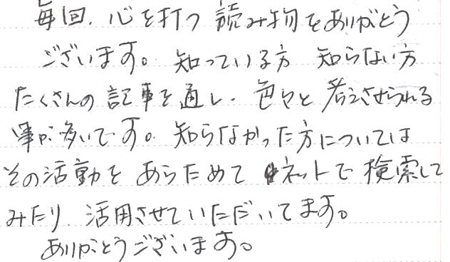 毎回、心を打つ読み物をありがとう
ございます。知っている方 知らない方
たくさんの記事を通し、色々と考えさせられる
事が多いです。知らなかった方については
その活動をあらためてネットで検索して
みたり、活用させていただいてます。
ありがとうございます。